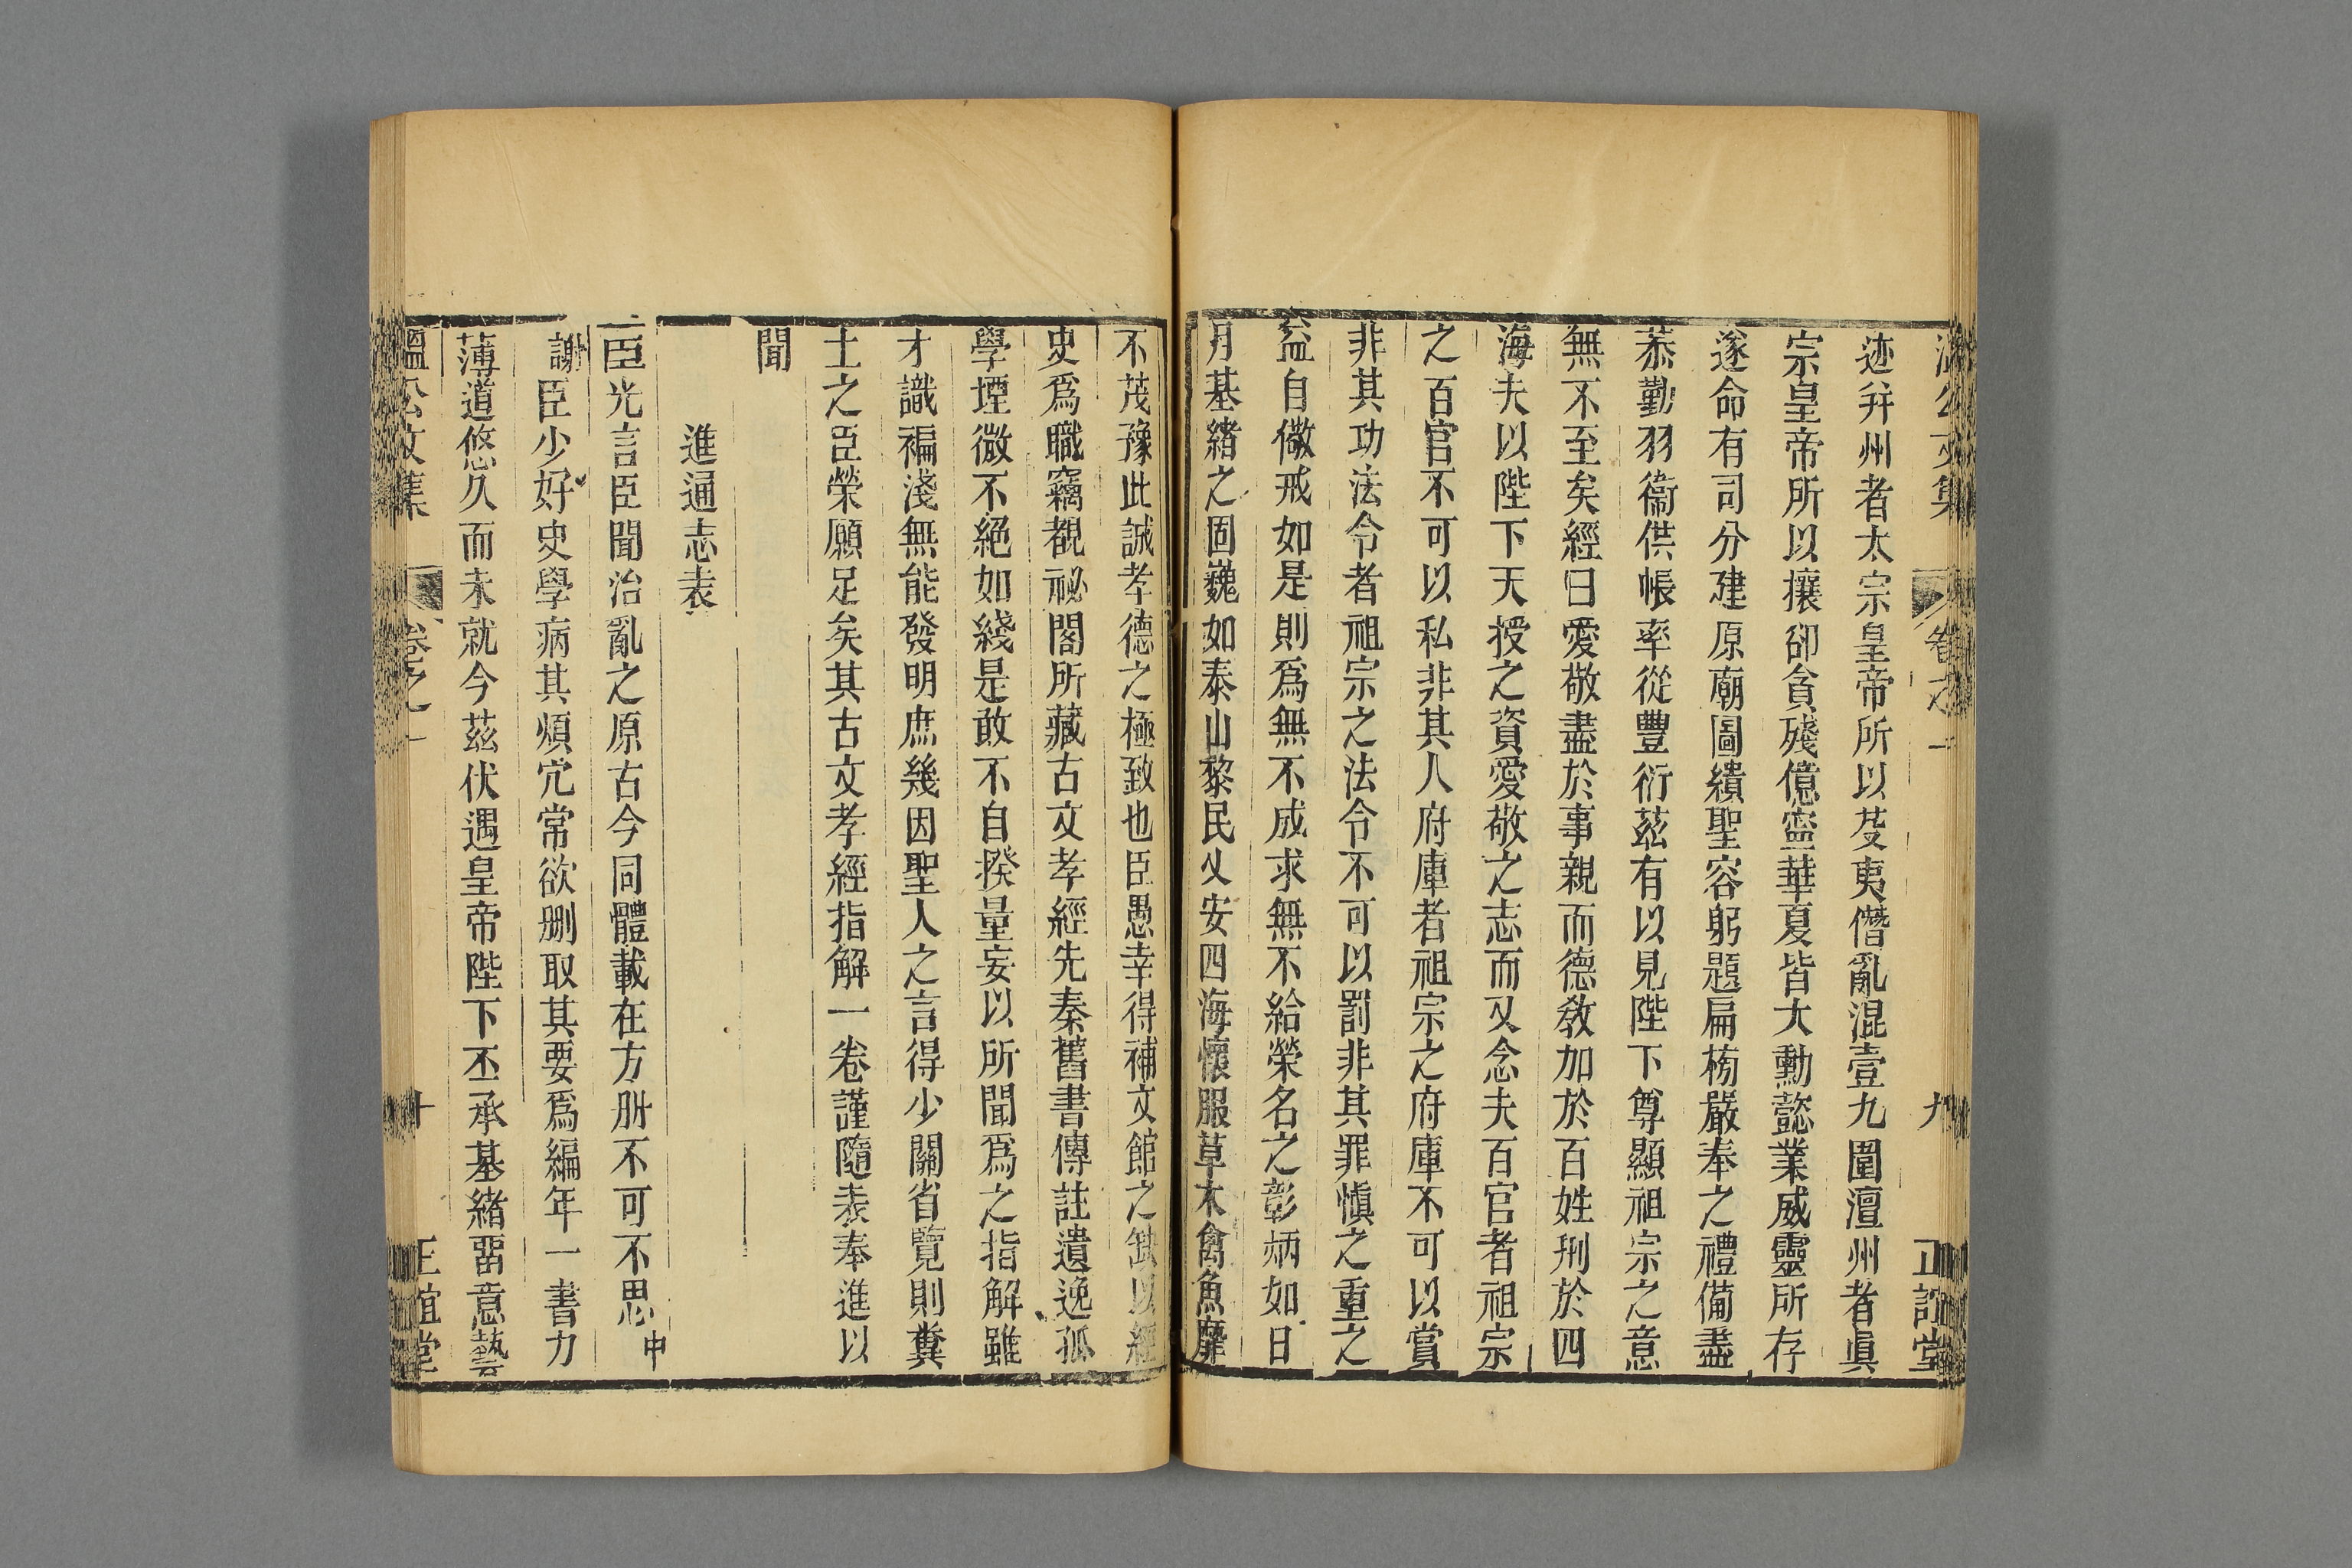 溫公文集 卷之一 九 正誼堂
迹幷州者太宗皇帝所以芟夷僭亂混壹九圍澶州者眞
宗皇帝所以攘卻貪殘億寧華夏皆大勳懿業威靈所存
遂命有司分建原廟圖繢聖容躬題扁榜嚴奉之禮備盡
恭勤羽衞供帳率從豐衍茲有以見陛下尊顯祖宗之意
無不至矣經曰愛敬盡於事親而德敎加於百姓刑於四
海夫以陛下天授之資愛敬之志而又念夫百官者祖宗
之百官不可以私非其人府庫者祖宗之府庫不可以賞
非其功法令者祖宗之法令不可以罰非其罪愼之重之
益自儆戒如是則爲無不成求無不給榮名之彰炳如日
月基緒之固巍如泰山黎民乂安四海懷服草木禽魚靡
不茂豫此誠孝德之極致也臣愚幸得補文館之缺以經
史爲職竊覩祕閣所藏古文孝經先秦舊書傳註遺逸孤
學堙微不絕如綫是敢不自揆量妄以所聞爲之指解雖
才識褊淺無能發明庶幾因聖人之言得少關省覽則糞
土之臣榮願足矣其古文孝經指解一卷謹隨表奉進以
聞
進通志表
臣光言臣聞治亂之原古今同體載在方册不可不思中
謝臣少好史學病其煩宂常欲删取其要爲編年一書力
薄道悠久而未就今茲伏遇皇帝陛下丕承基緒畱意藝
溫公文集 卷之一 十 正誼堂